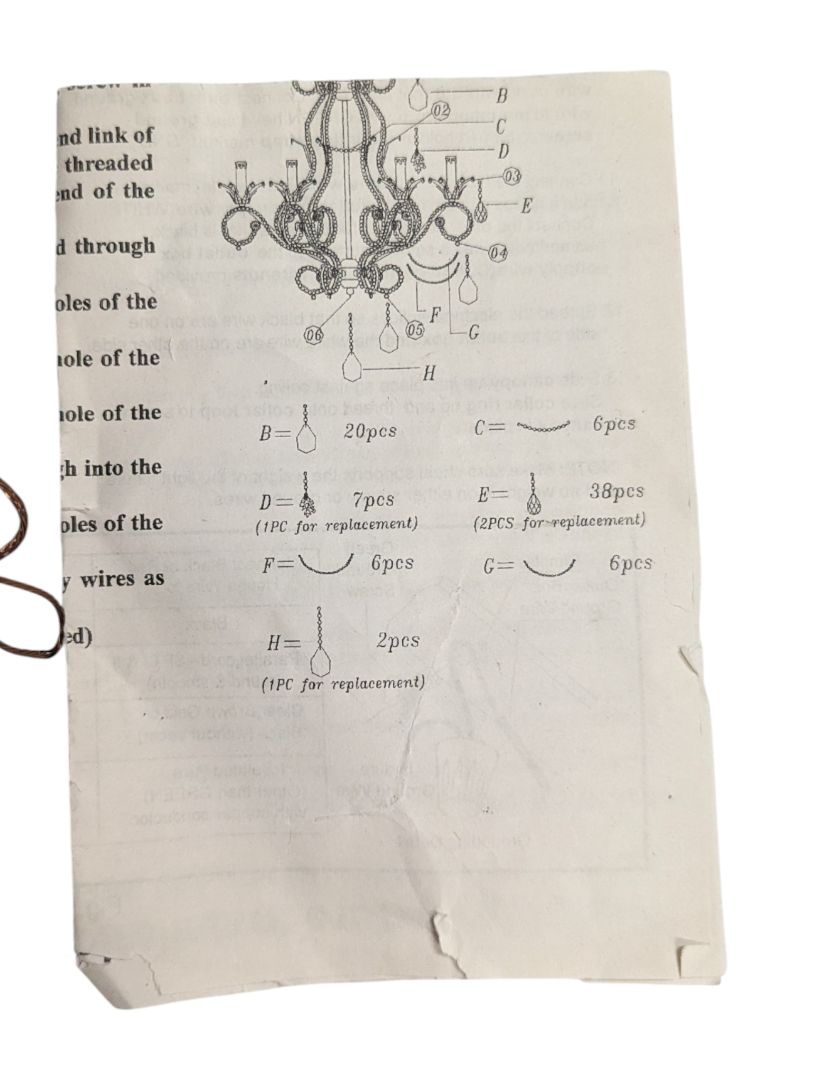 nd link of
threaded
end of the
d through
oles of the
hole of the
hole of the
gh into the
oles of the
y wires as
ed)
B
02
C
D
03
E
04
F
05
06
G
H
B= 20pcs
C= 6pcs
D= 7pcs
(1PC for replacement)
E= 38pcs
(2PCS for replacement)
F= 6pcs
G= 6pcs
H= 2pcs
(1PC for replacement)